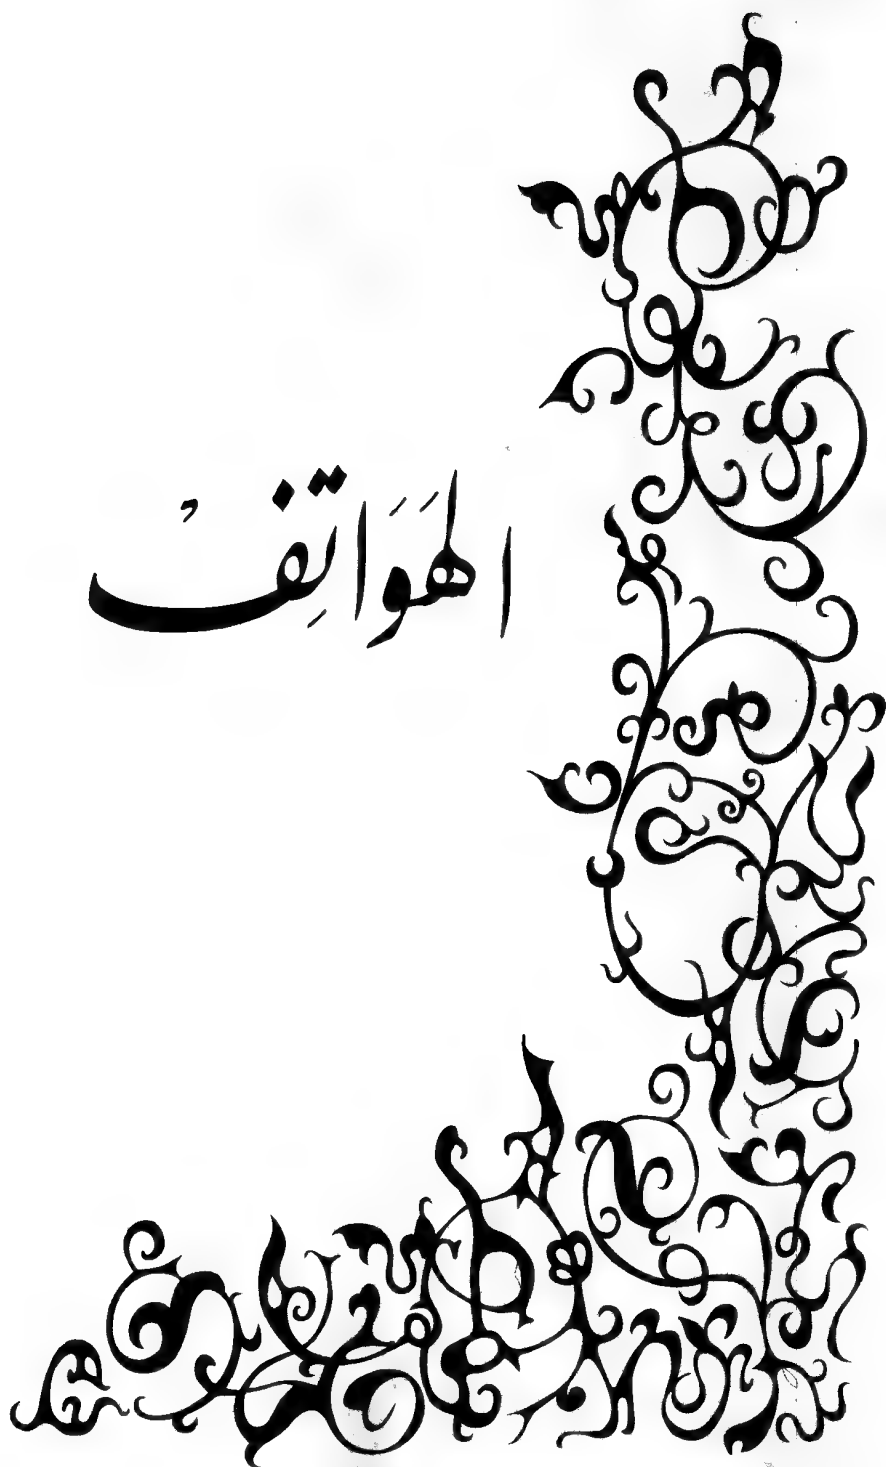 الهَوَاتِفْ